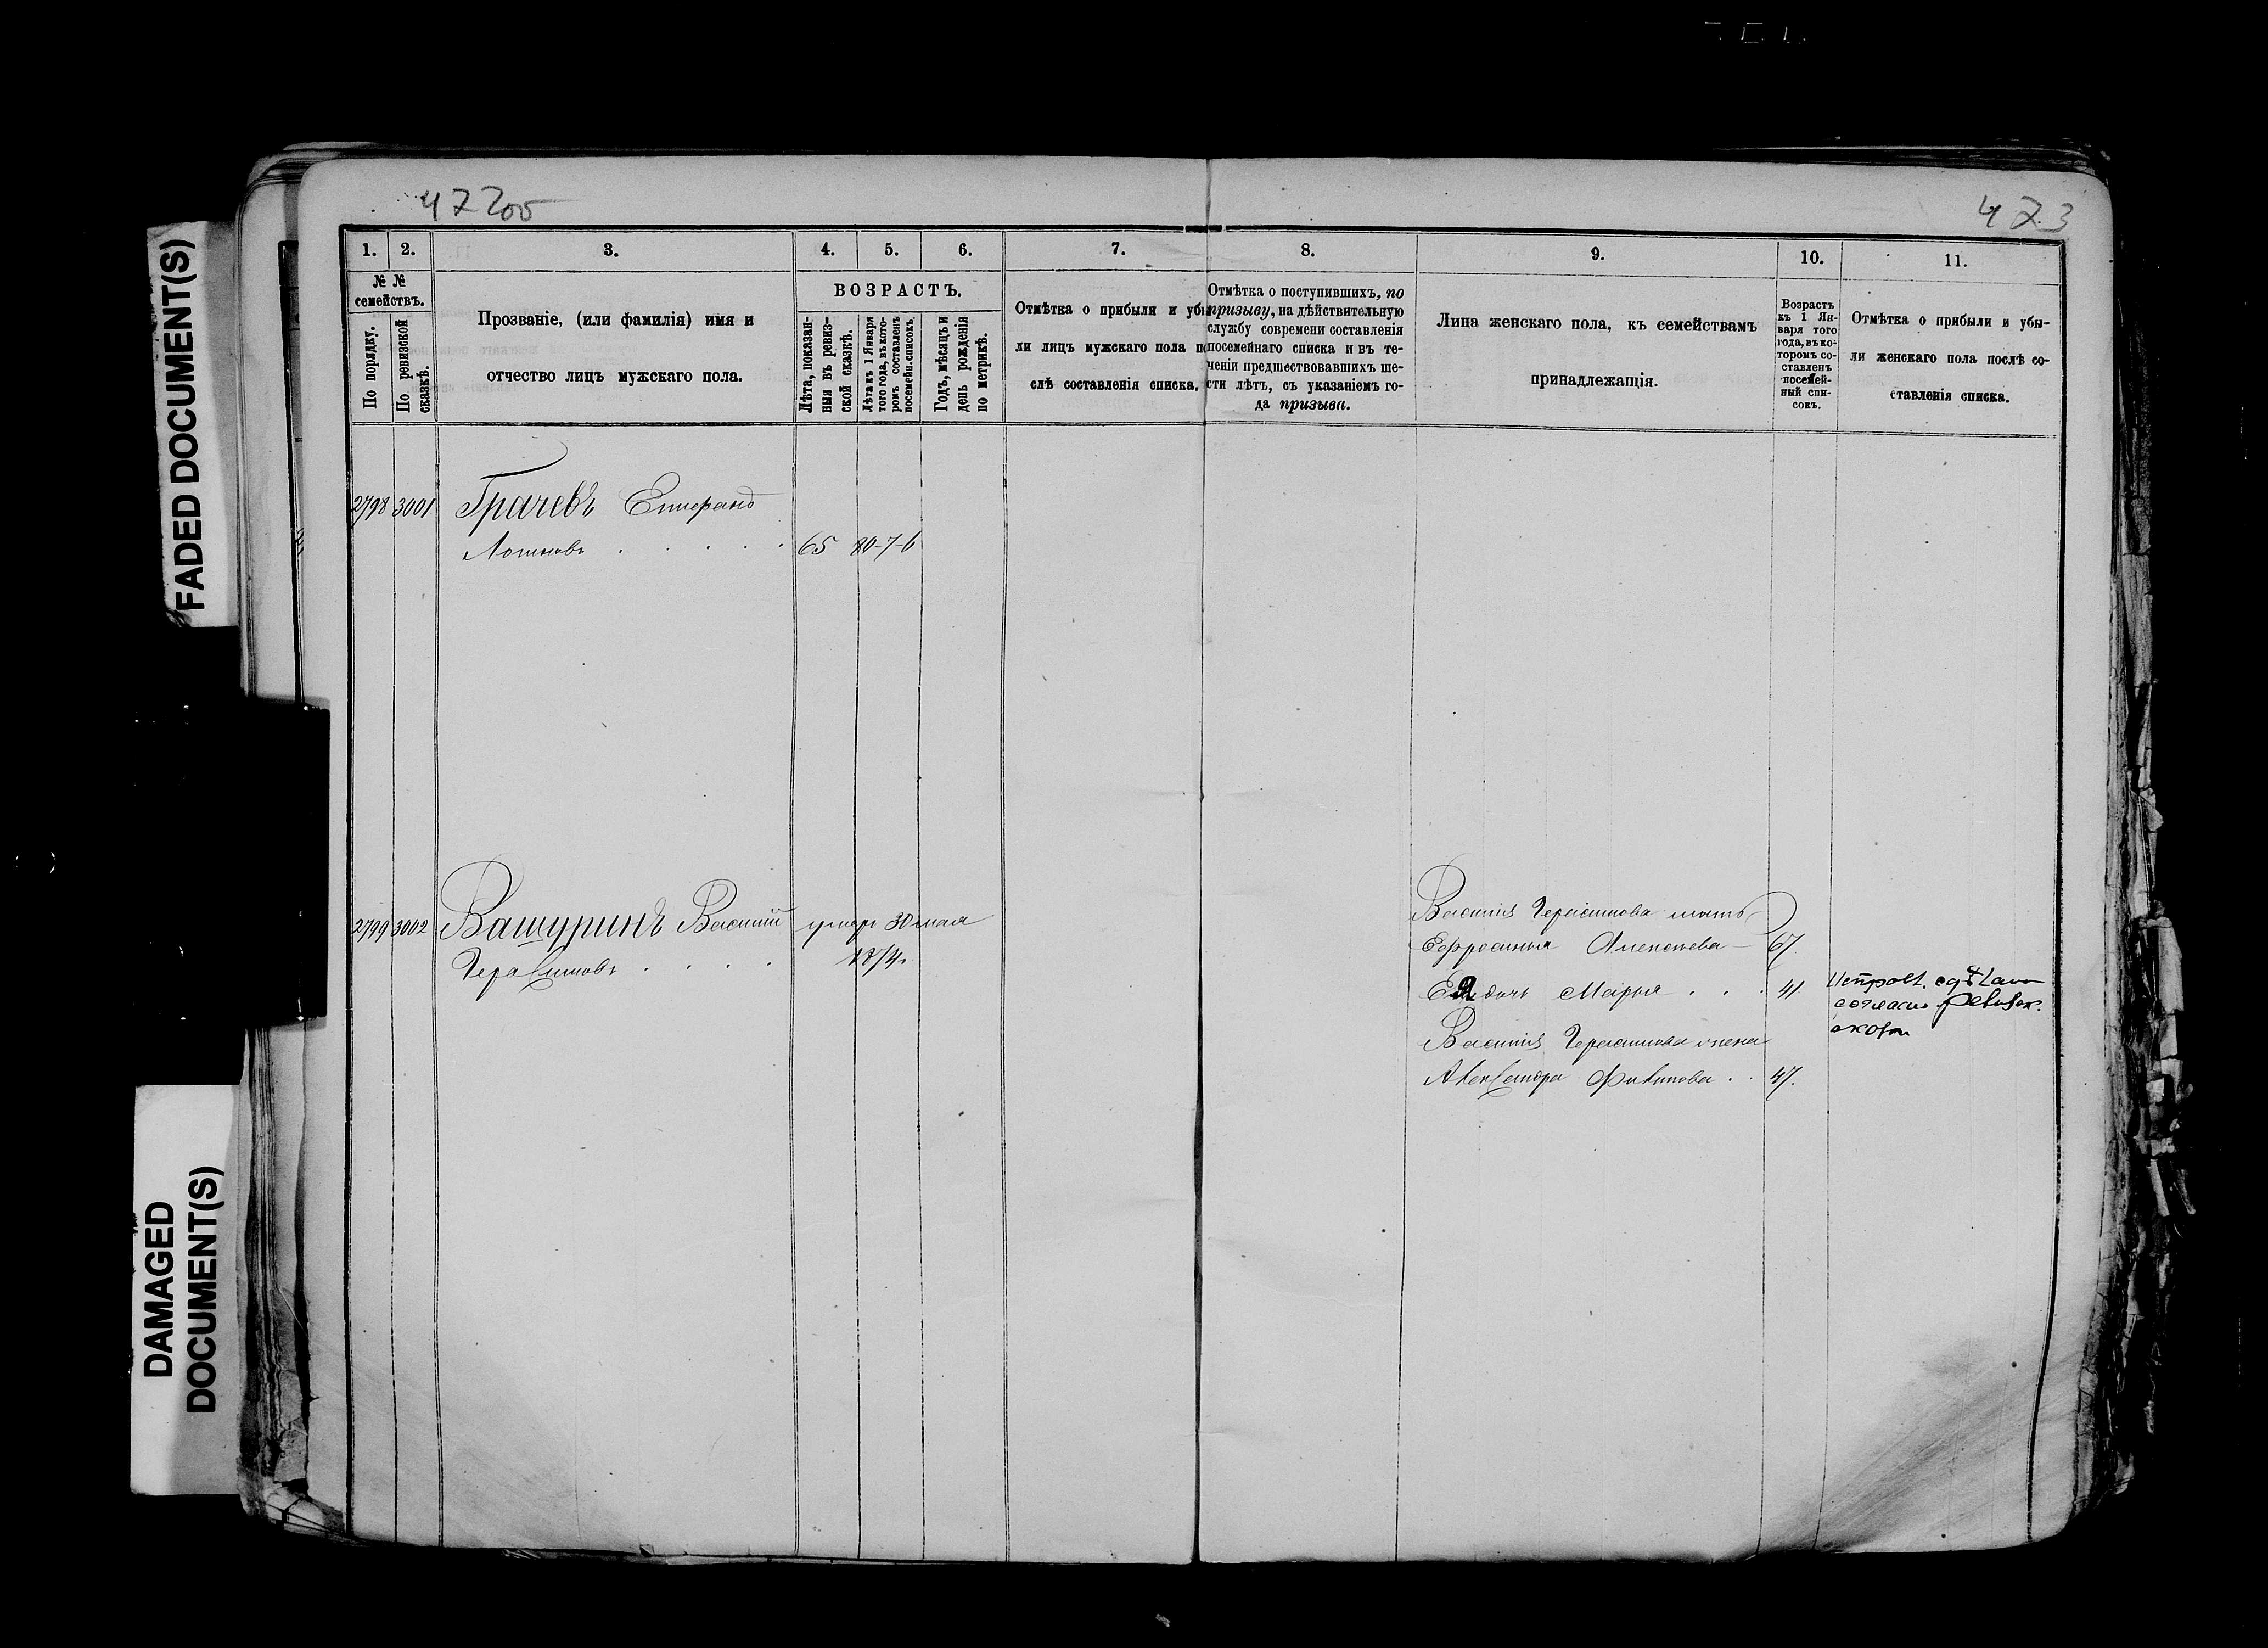 FADED DOCUMENT(S)
DAMAGED
DOCUMENT(S)
47 2об
473
1.
2.
3.
4.
5.
6.
7.
8.
9.
10.
11.
№ №
семействъ.
По порядку.
По ревизской
сказкѣ.
Прозваніе, (или фамилія) имя и
отчество лицъ мужскаго пола.
ВОЗРАСТЪ.
Лѣта, показан-
ныя въ ревиз-
ской сказкѣ.
Лѣта къ 1 Января
того года, въ кото-
ромъ составленъ
посемейн. списокъ.
Годъ, мѣсяцъ и
день рожденія
по метрикѣ.
Отмѣтка о прибыли и убы
ли лицъ мужскаго пола по
слѣ составленія списка.
Отмѣтка о поступившихъ, по
призыву, на дѣйствительную
службу современи составленія
посемейнаго списка и въ те-
ченіи предшествовавшихъ ше-
сти лѣтъ, съ указаніемъ го-
да призыва.
Лица женскаго пола, къ семействамъ
принадлежащія.
Возрастъ
къ 1 Ян-
варя того
года, въ ко-
торомъ со-
ставленъ
посемей-
ный спи-
сокъ.
Отмѣтка о прибыли и убы-
ли женскаго пола послѣ со-
ставленія списка.
2798 3001 Грачевъ
65 80-7-6
2799 3002 Вашуринъ Василій умеръ 30 мая
Герасимовъ 1874.
Василія Герасимова мать
Ефросинья Алексѣева 67
Ея дочь Марья 41
Василія Герасимова жена
Александра Филипова 47.
Исправл. сдѣлано
согласно ревизск.
сказки